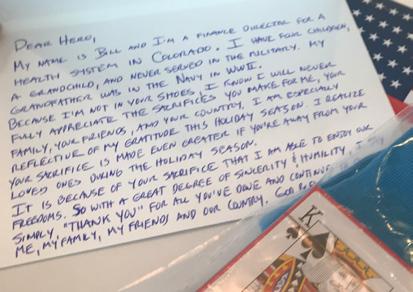 DEAR HERO,
MY NAME IS BILL AND I'M A FINANCE DIRECTOR FOR A
HEALTH SYSTEM IN COLORADO. I HAVE FOUR CHILDREN,
A GRANDCHILD, AND NEVER SERVED IN THE MILITARY. MY
GRANDFATHER WAS IN THE NAVY IN WWII.
BECAUSE I'M NOT IN YOUR SHOES, I KNOW I WILL NEVER
FULLY APPRECIATE THE SACRIFICES YOU MAKE FOR ME, YOUR
FAMILY, YOUR FRIENDS, AND YOUR COUNTRY. I AM ESPECIALLY
REFLECTIVE OF MY GRATITUDE THIS HOLIDAY SEASON. I REALIZE
YOUR SACRIFICE IS MADE EVEN GREATER IF YOU'RE AWAY FROM YOUR
LOVED ONES DURING THE HOLIDAY SEASON.
IT IS BECAUSE OF YOUR SACRIFICE THAT I AM ABLE TO ENJOY OUR
FREEDOMS. SO WITH A GREAT DEGREE OF SINCERITY & HUMILITY, I
SIMPLY "THANK YOU" FOR ALL YOU'VE DONE AND CONTINUE
ME, MY FAMILY, MY FRIENDS AND OUR COUNTRY. GOD
K